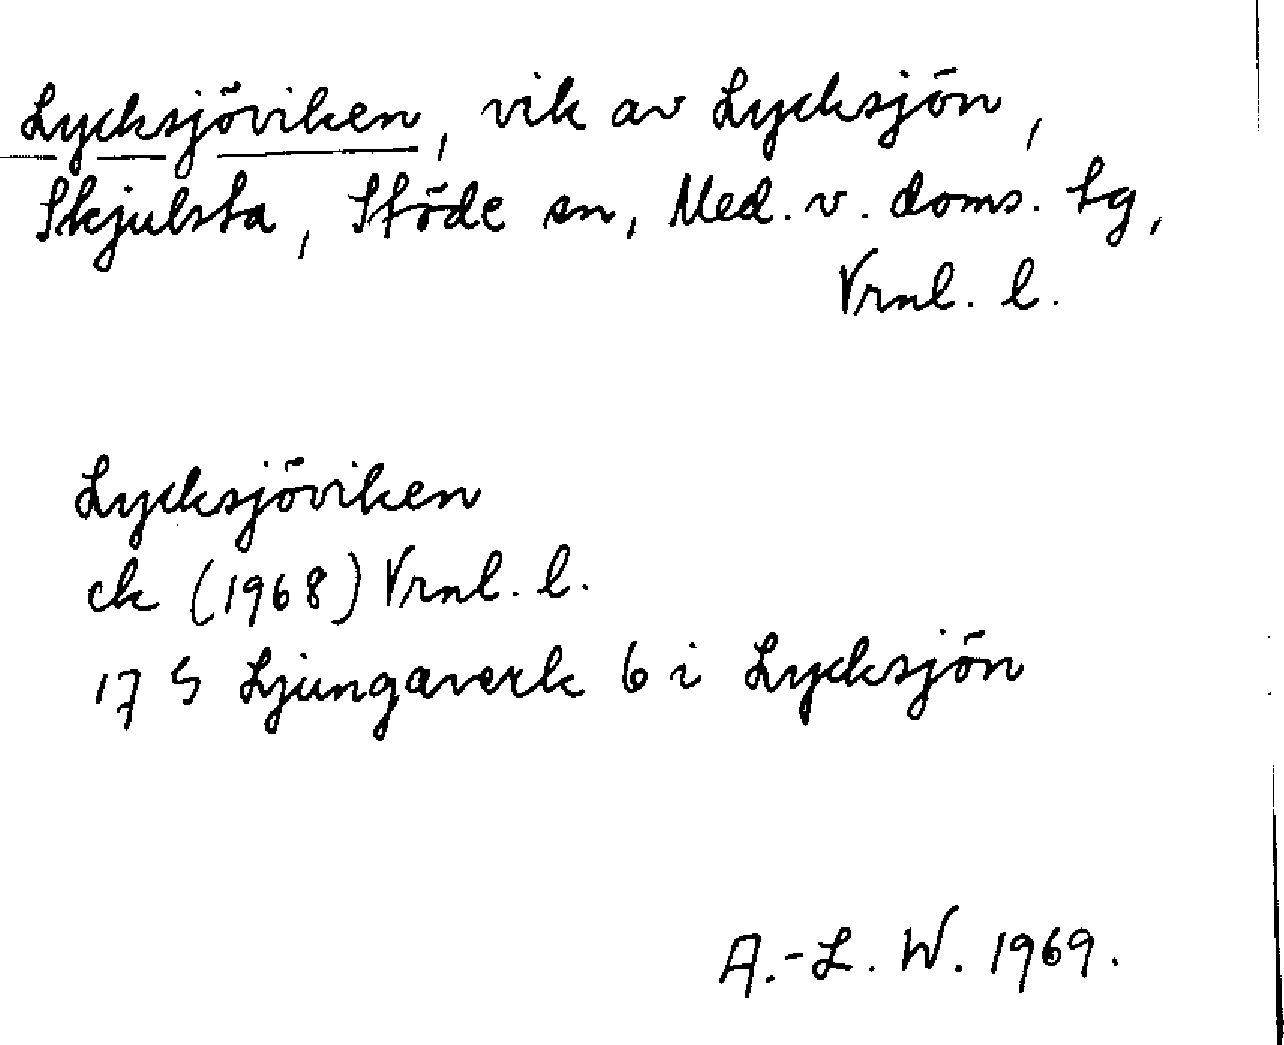 Lycksjöviken, vik av Lycksjön,
Skjulsta, Stöde sn, Med. v. doms. tg,
Vrnl. l.
Lycksjöviken
ek (1968) Vrnl. l.
17 S Ljungaverk 6 i Lycksjön
A.-L. W. 1969.